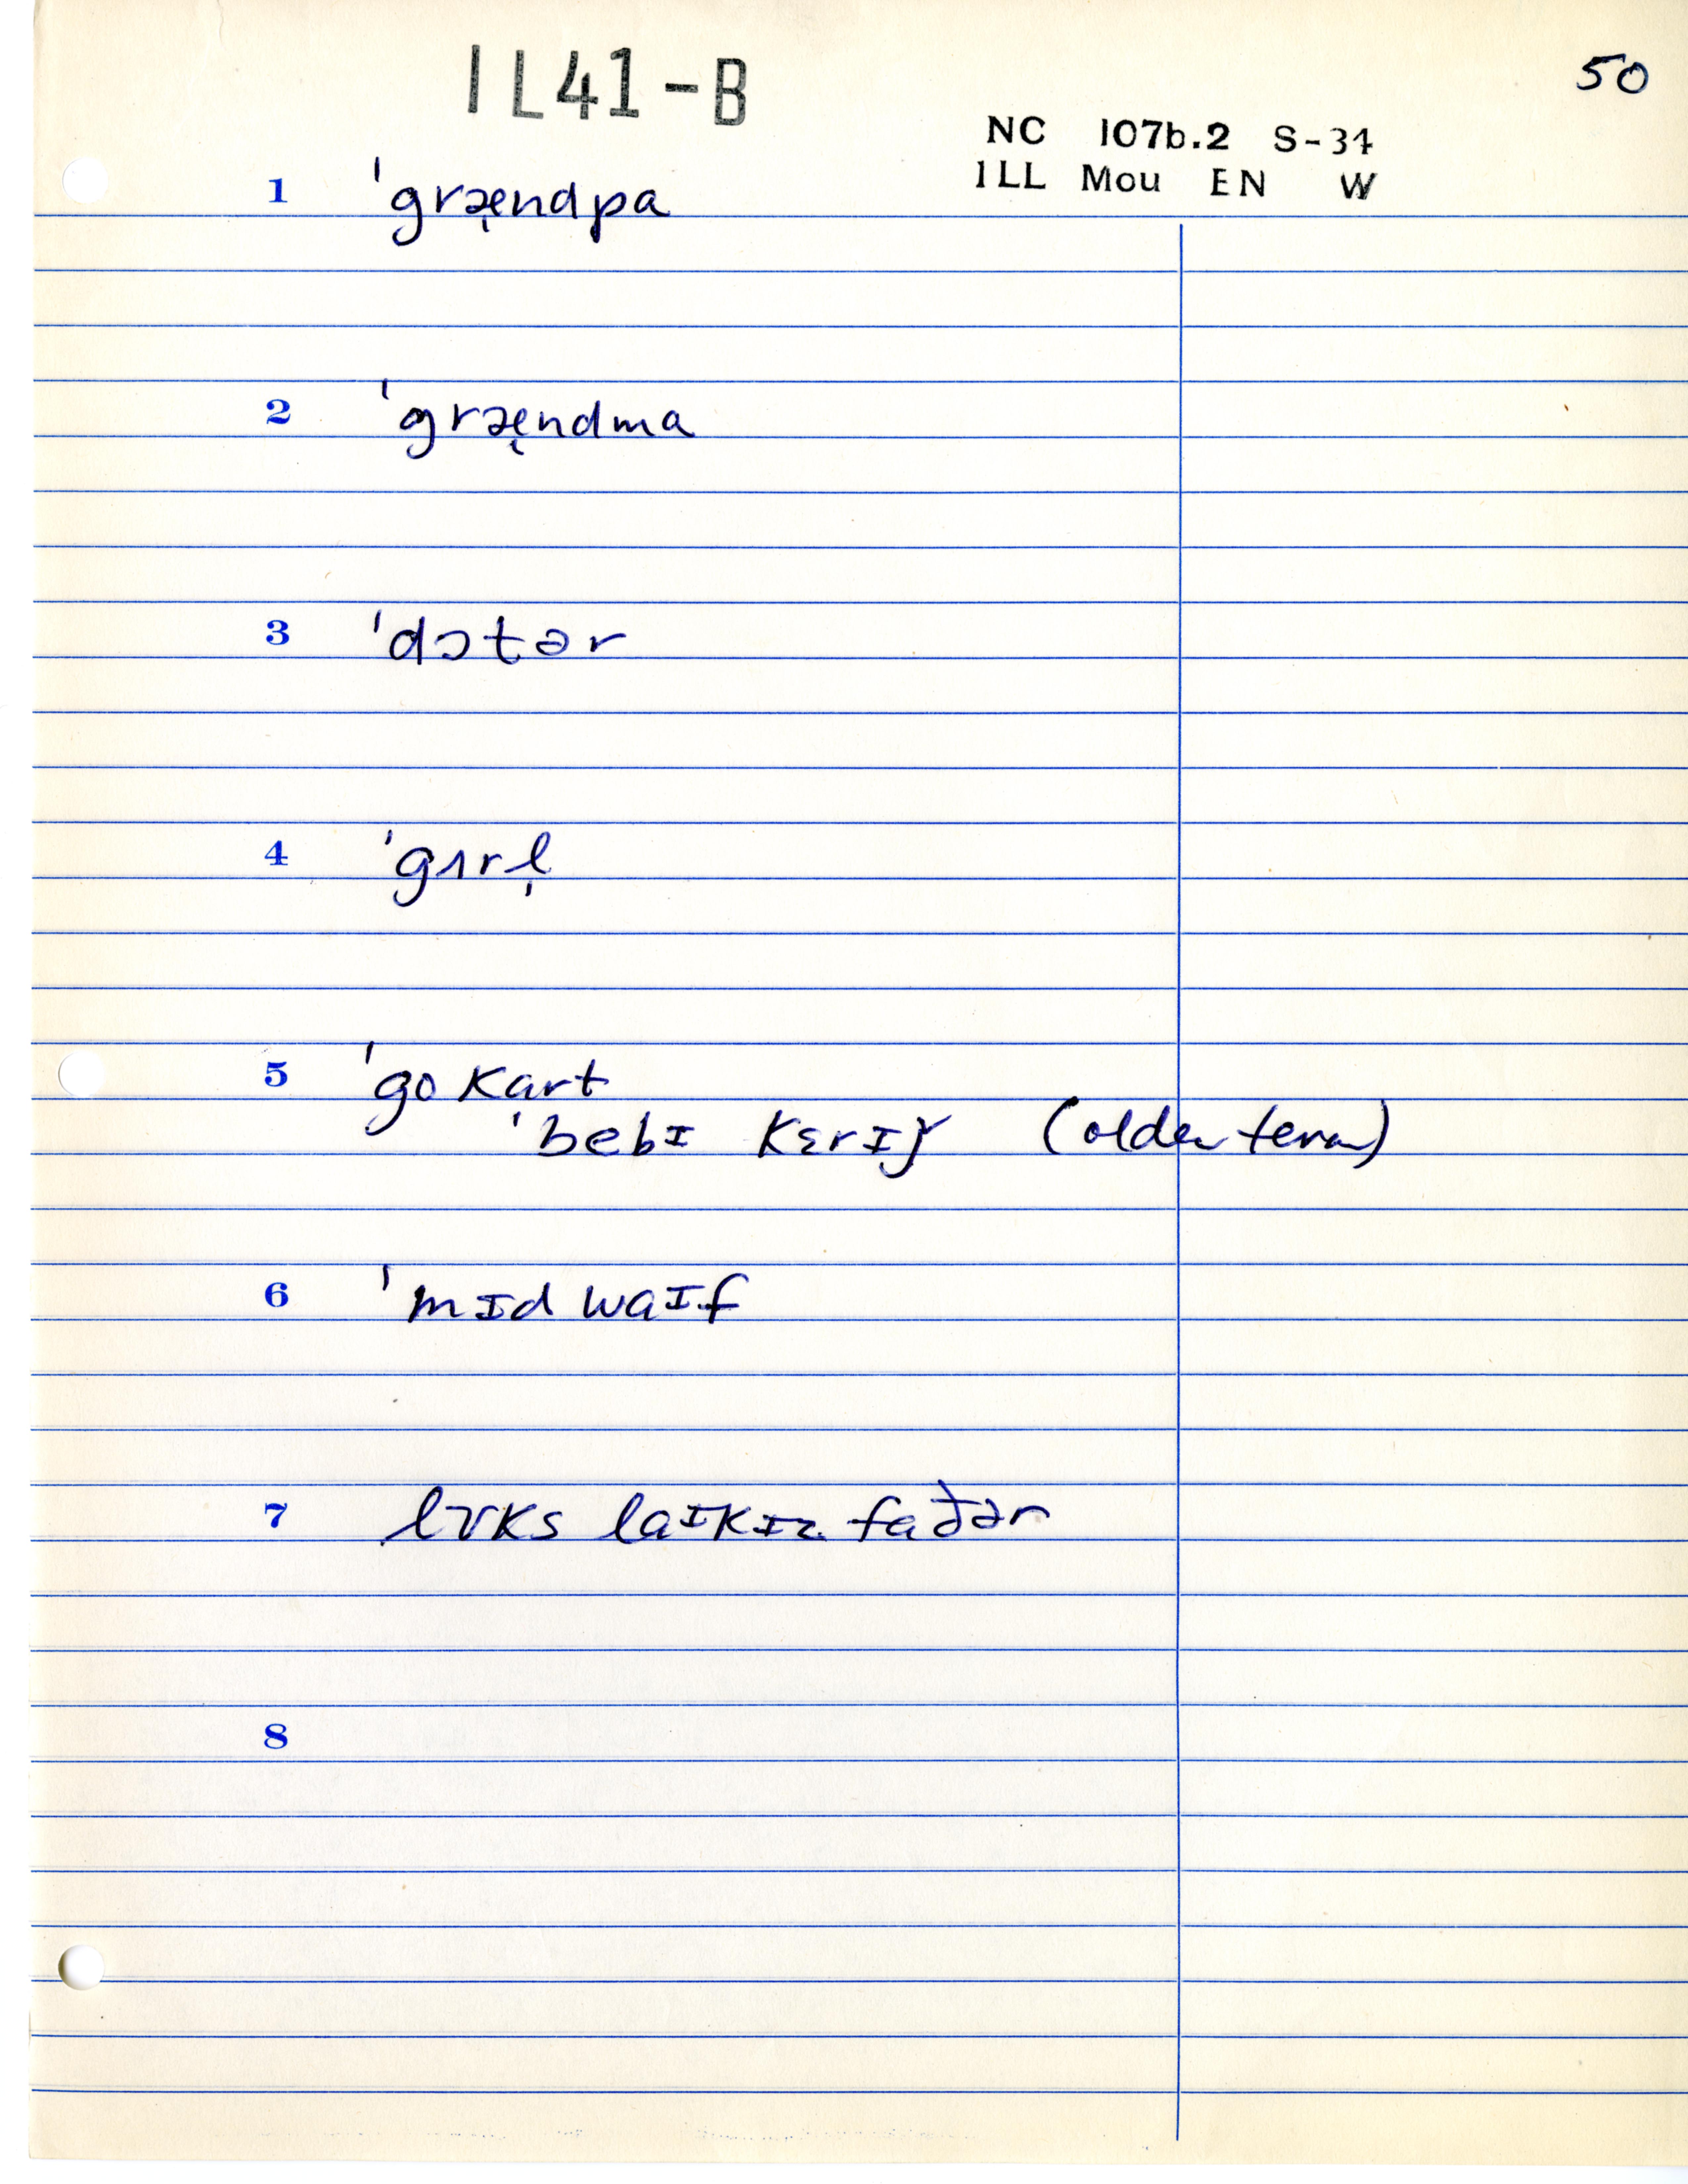 IL41-B
50
NC 107b.2 S-34
ILL Mou EN W
1 ˈgræ̨ndpa
2 ˈgræ̨ndma
3 ˈdɔtər
4 ˈgɜrl̩
5 ˈgo kart
ˈbebɪ kɛrɪǰ (older term)
6 ˈmɪd waɪf
7 lʊks laɪkɪz faðər
8